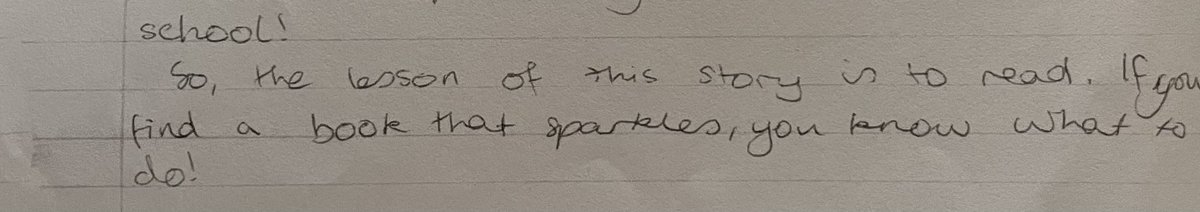 school!
So, the lesson of this story is to read. If you
find a book that sparkles, you know what to
do!